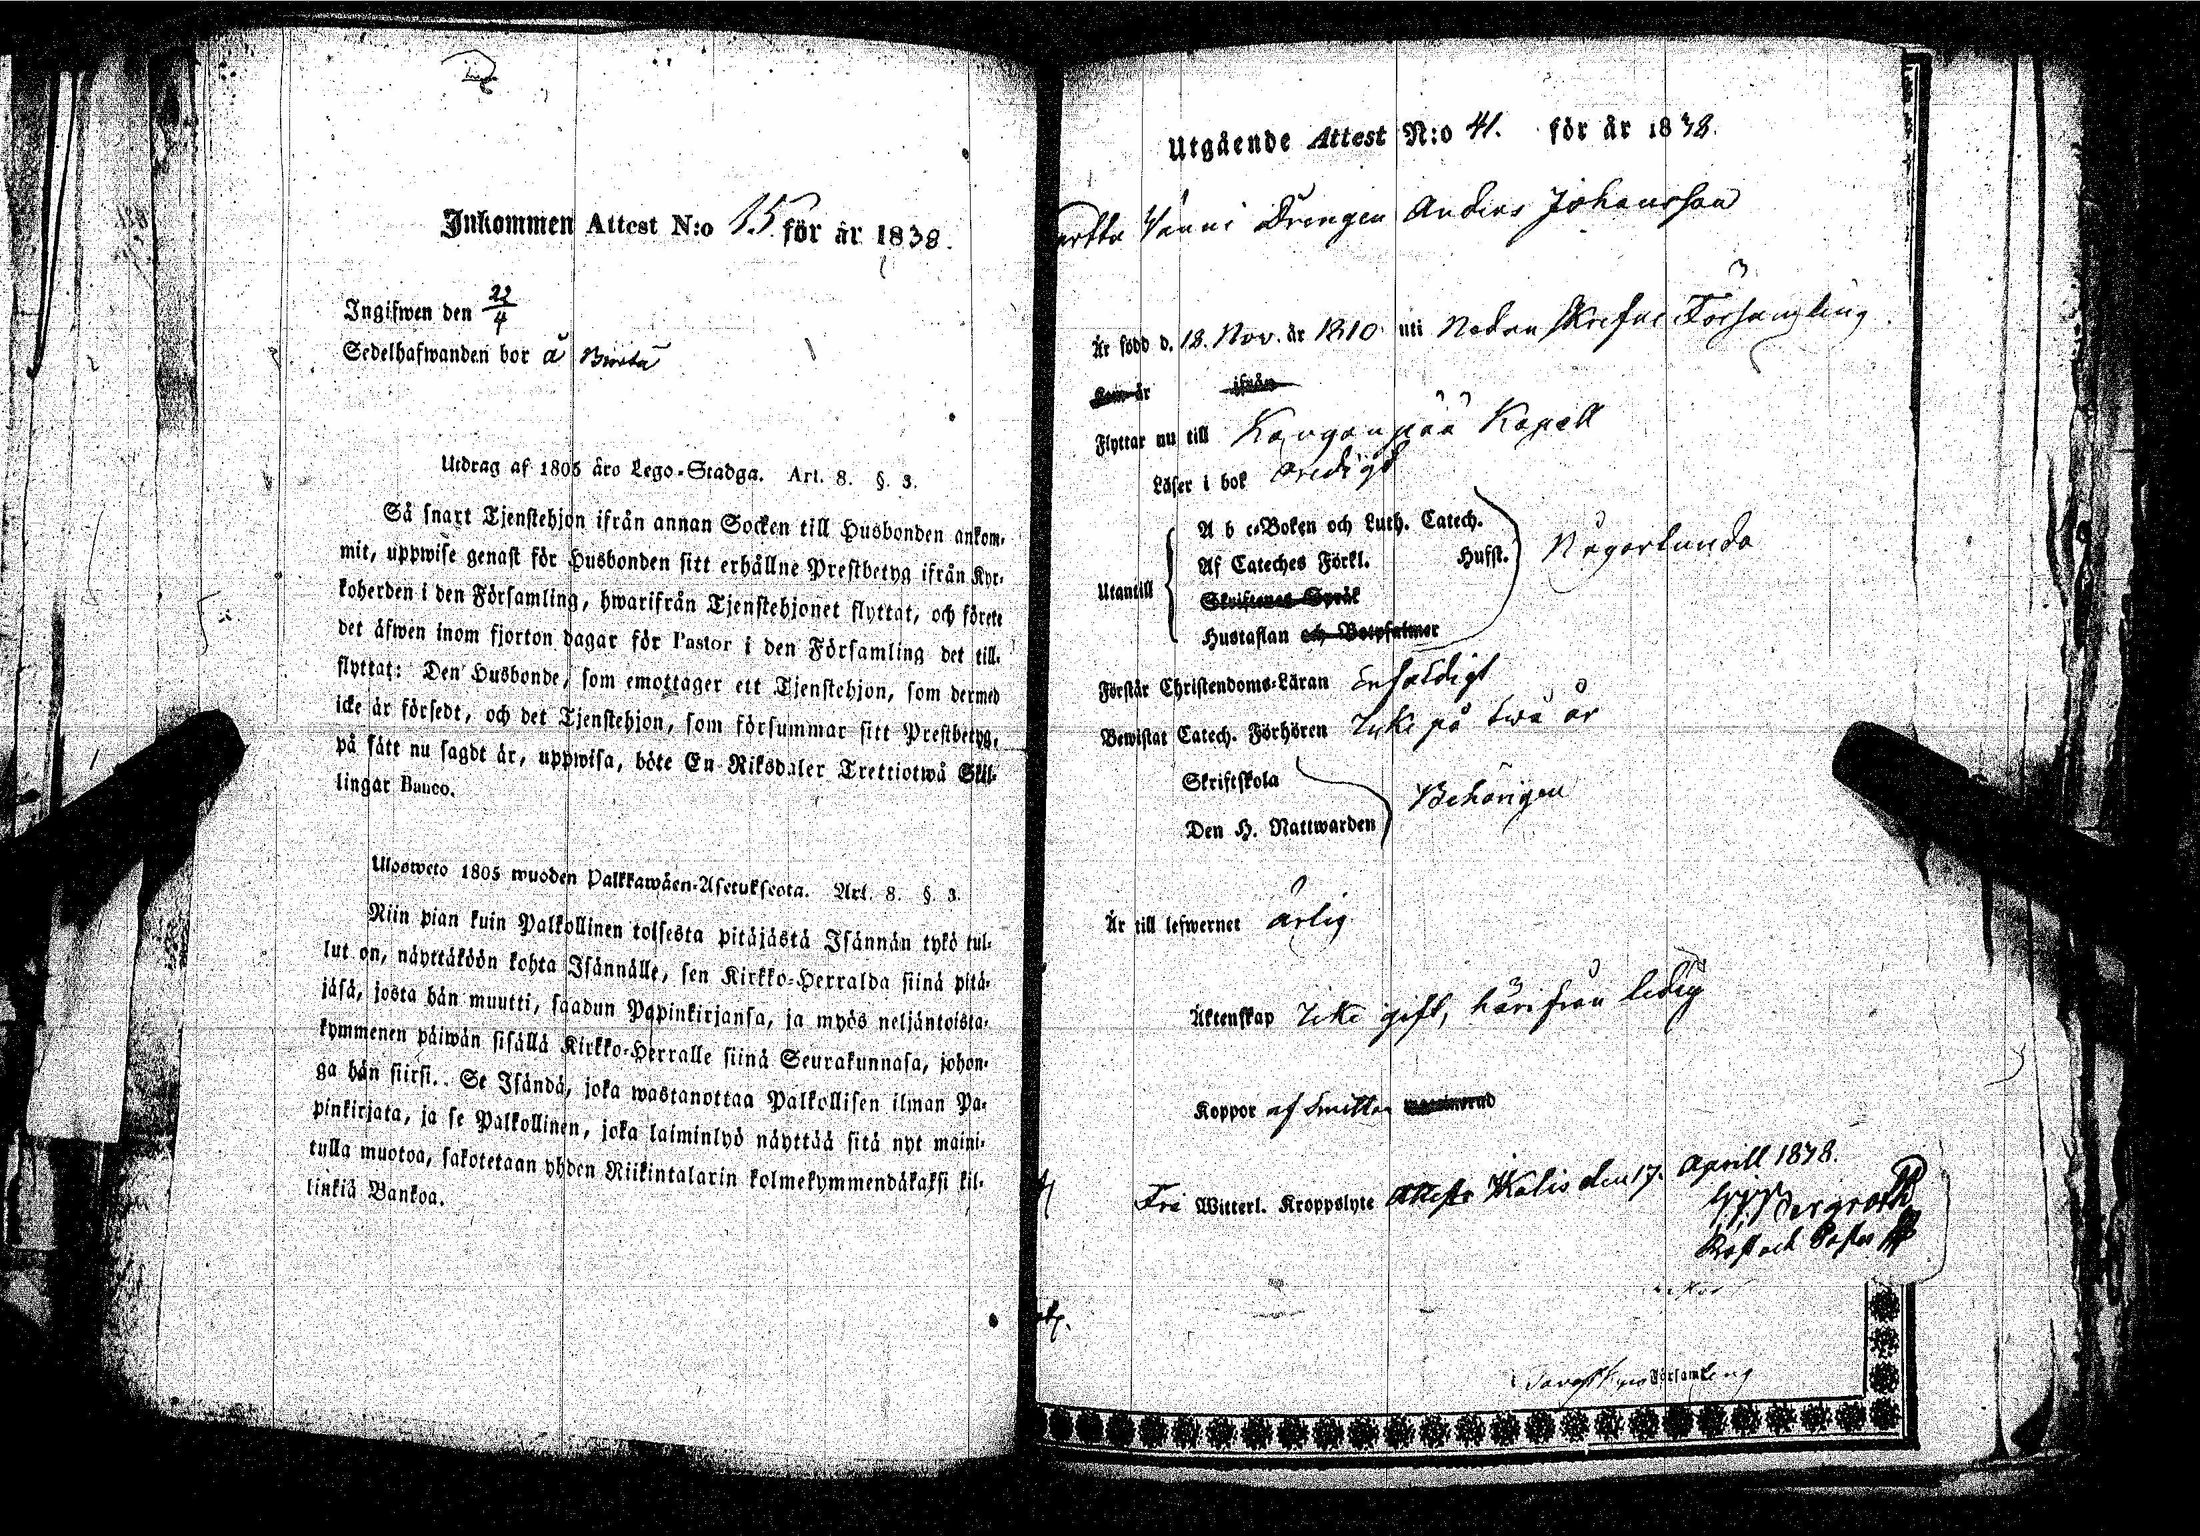 Inkommen Attest N:o 15 för år 1838.
Ingifwen den 22/4
Sedelhafwanden bor å
Utdrag af 1805 års Lego-Stadga. Art. 8. §. 3.
Så snart Tjenstehjon ifrån annan Socken till Husbonden ankom-
mit, uppwise genast för Husbonden sitt erhållne Prestbetyg ifrån Kyr-
koherden i den Församling, hwarifrån Tjenstehjonet flyttat, och förete
det äfwen inom fjorton dagar för Pastor i den Församling det till-
flyttat: Den Husbonde, som emottager ett Tjenstehjon, som dermed
icke är försedt, och det Tjenstehjon, som försummar sitt Prestbetyg,
på sätt nu sagdt är, uppwisa, böte En Riksdaler Trettiotwå Skil-
lingar Banco.
Ulosweto 1805 wuoden Palkkawäen-Asetuksesta. Art. 8. §. 3.
Niin pian kuin Palkollinen toisesta pitäjästä Isännän tykö tul-
lut on, näyttäköön kohta Isännälle, sen Kirkko-Herralda siinä pitä-
jäsä, josta hän muutti, saadun Papinkirjansa, ja myös neljäntoista-
kymmenen päiwän sisällä Kirkko-Herralle siinä Seurakunnasa, johon-
ga hän siirsi. Se Isändä, joka wastanottaa Palkollisen ilman Pa-
pinkirjata, ja se Palkollinen, joka laiminlyö näyttää sitä nyt maini-
tulla muotoa, sakotetaan yhden Riikintalarin kolmekymmendäkaksi kil-
linkiä Bankoa.
Utgående Attest N:o 41. för år 1838.
Drengen Anders Johansson
Är född d. 18. Nov. år 1810 uti Nedan Skrefne Församling
Kom år ifrån
Flyttar nu till Kanganpää Kapell
Läser i bok oredigt
Utantill
A b c-Boken och Luth. Catech.
Af Cateches Förkl. Hufst.
Skriftenes Språk
Hustaflan och Botpsalmer
Någorlunda
Förstår Christendoms-Läran Enfaldigt
Bewistat Catech. Förhören Icke på twå år
Skriftskola
Den H. Nattwarden
Behörigen
Är till lefwernet ärlig
Äktenskap Icke gift, härifrån ledig
Koppor af Smittan
Fri Witterl. Kroppslyte Attesta den 17. Aprill 1838.
Bergroth
Församling